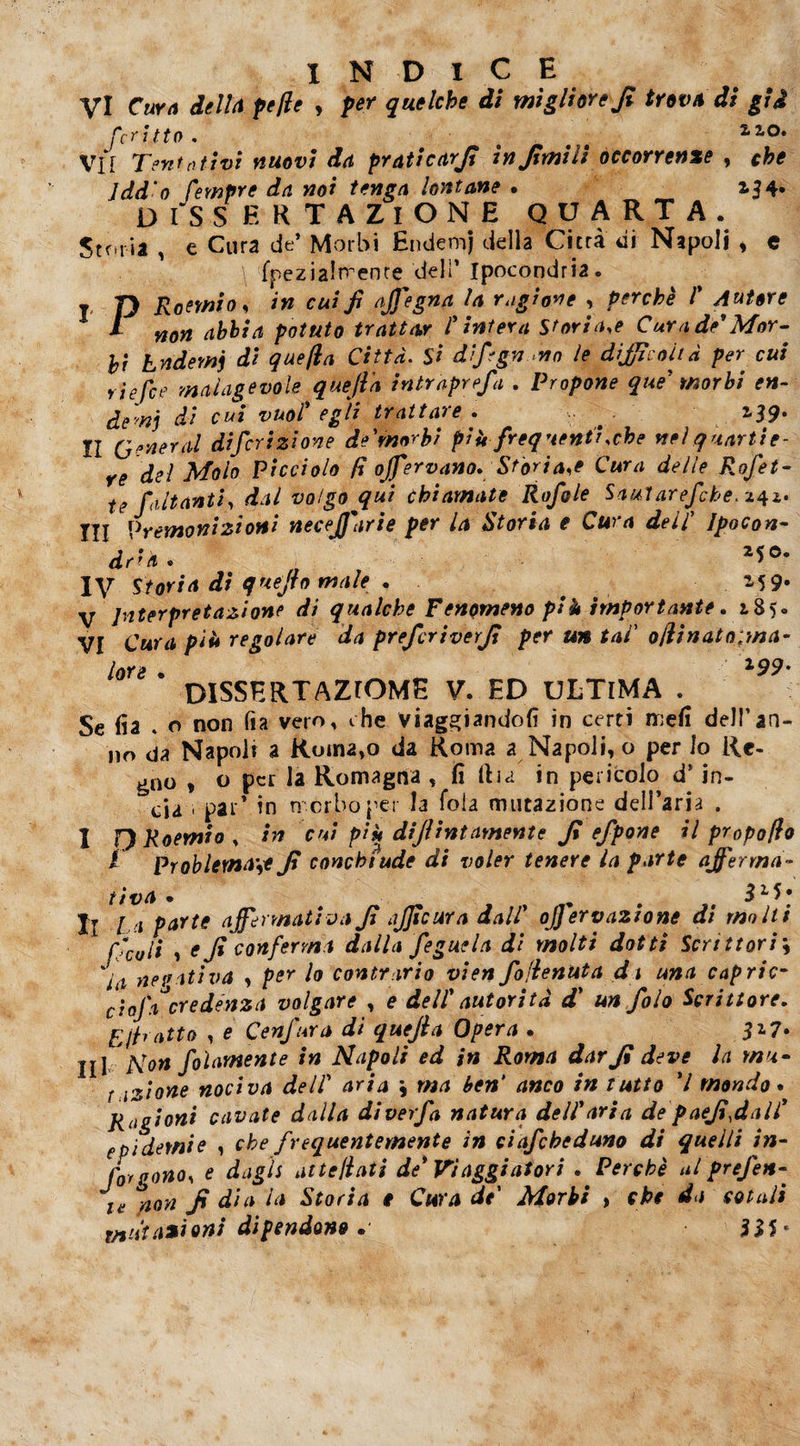 INDICE
VI Cura della peſte , per quelche di migliore ſi trova di già
ſcritto . 220.
VII Tentativi nuovi da praticarſi in ſimili occorrenze , che
Idd'o ſempre da noi tenga lontane . 234.
DISSERTAZIONE QUARTA.
Storia , e Cura de' Morbi Endemj della Città di Napoli , e
ſpezialmente dell' Ipocondria .
I. PRoemio , in cui ſi aſſegna la ragione , perchè l' Autore
non abbia potuto trattar l'intera Storia,e Cura de' Mor-
bi Endemj di queſta Città. Si diſegnano le difficoltà per cui
rieſce malagevole queſta intrapreſa . Propone que' morbi en-
demj di cui vuol' egli trattare . 239.
II General diſcrizione de' morbi più frequenti,che nel quartie-
re del Molo Picciolo ſi oſſervano. Storia,e Cura delle Roſet-
te ſaltanti, dal volgo qui chiamate Roſole Sautareſche. 242.
III Premonizioni neceſſarie per la Storia e Cura dell' Ipocon-
dria . 250.
IV Storia di queſto male . 259.
V Interpretazione di qualche Fenomeno più importante . 285.
VI Cura più regolare da preſcriverſi per un tal' oſtinato ma-
lore . 299.
DISSERTAZIOME V. ED ULTIMA .
Se ſia , o non ſia vero, che viaggiandoſi in certi meſi dell' an-
no da Napoli a Roma,o da Roma a Napoli, o per lo Re-
gno , o per la Romagna , ſi ſtia in pericolo d' in-
cia , par' in morbo per la ſola mutazione dell'aria .
I PRoemio , in cui più diſtintamente ſi eſpone il propoſto
Problema,e ſi conchiude di voler tenere la parte afferma-
tiva . 315.
II La parte affermativa ſi aſſicura dall' oſſervazione di molti
ſecoli , e ſi conferma dalla ſeguela di molti dotti Scrittori;
la negativa , per lo contrario vien ſoſtenuta da una capric-
cioſa credenza volgare , e dell' autorità d' un ſolo Scrittore.
Eſtratto , e Cenſura di queſta Opera . 327.
III Non ſolamente in Napoli ed in Roma darſi deve la mu-
tazione nociva dell' aria ; ma ben' anco in tutto 'l mondo .
Ragioni cavate dalla diverſa natura dell'aria de' paeſi,dall'
epidemie , che frequentemente in ciaſcheduno di quelli in-
ſorgono, e dagli atteſtati de' Viaggiatori . Perchè al preſen-
te non ſi dia la Storia e Cura de' Morbi , che da cotali
mutazioni dipendono . 335.